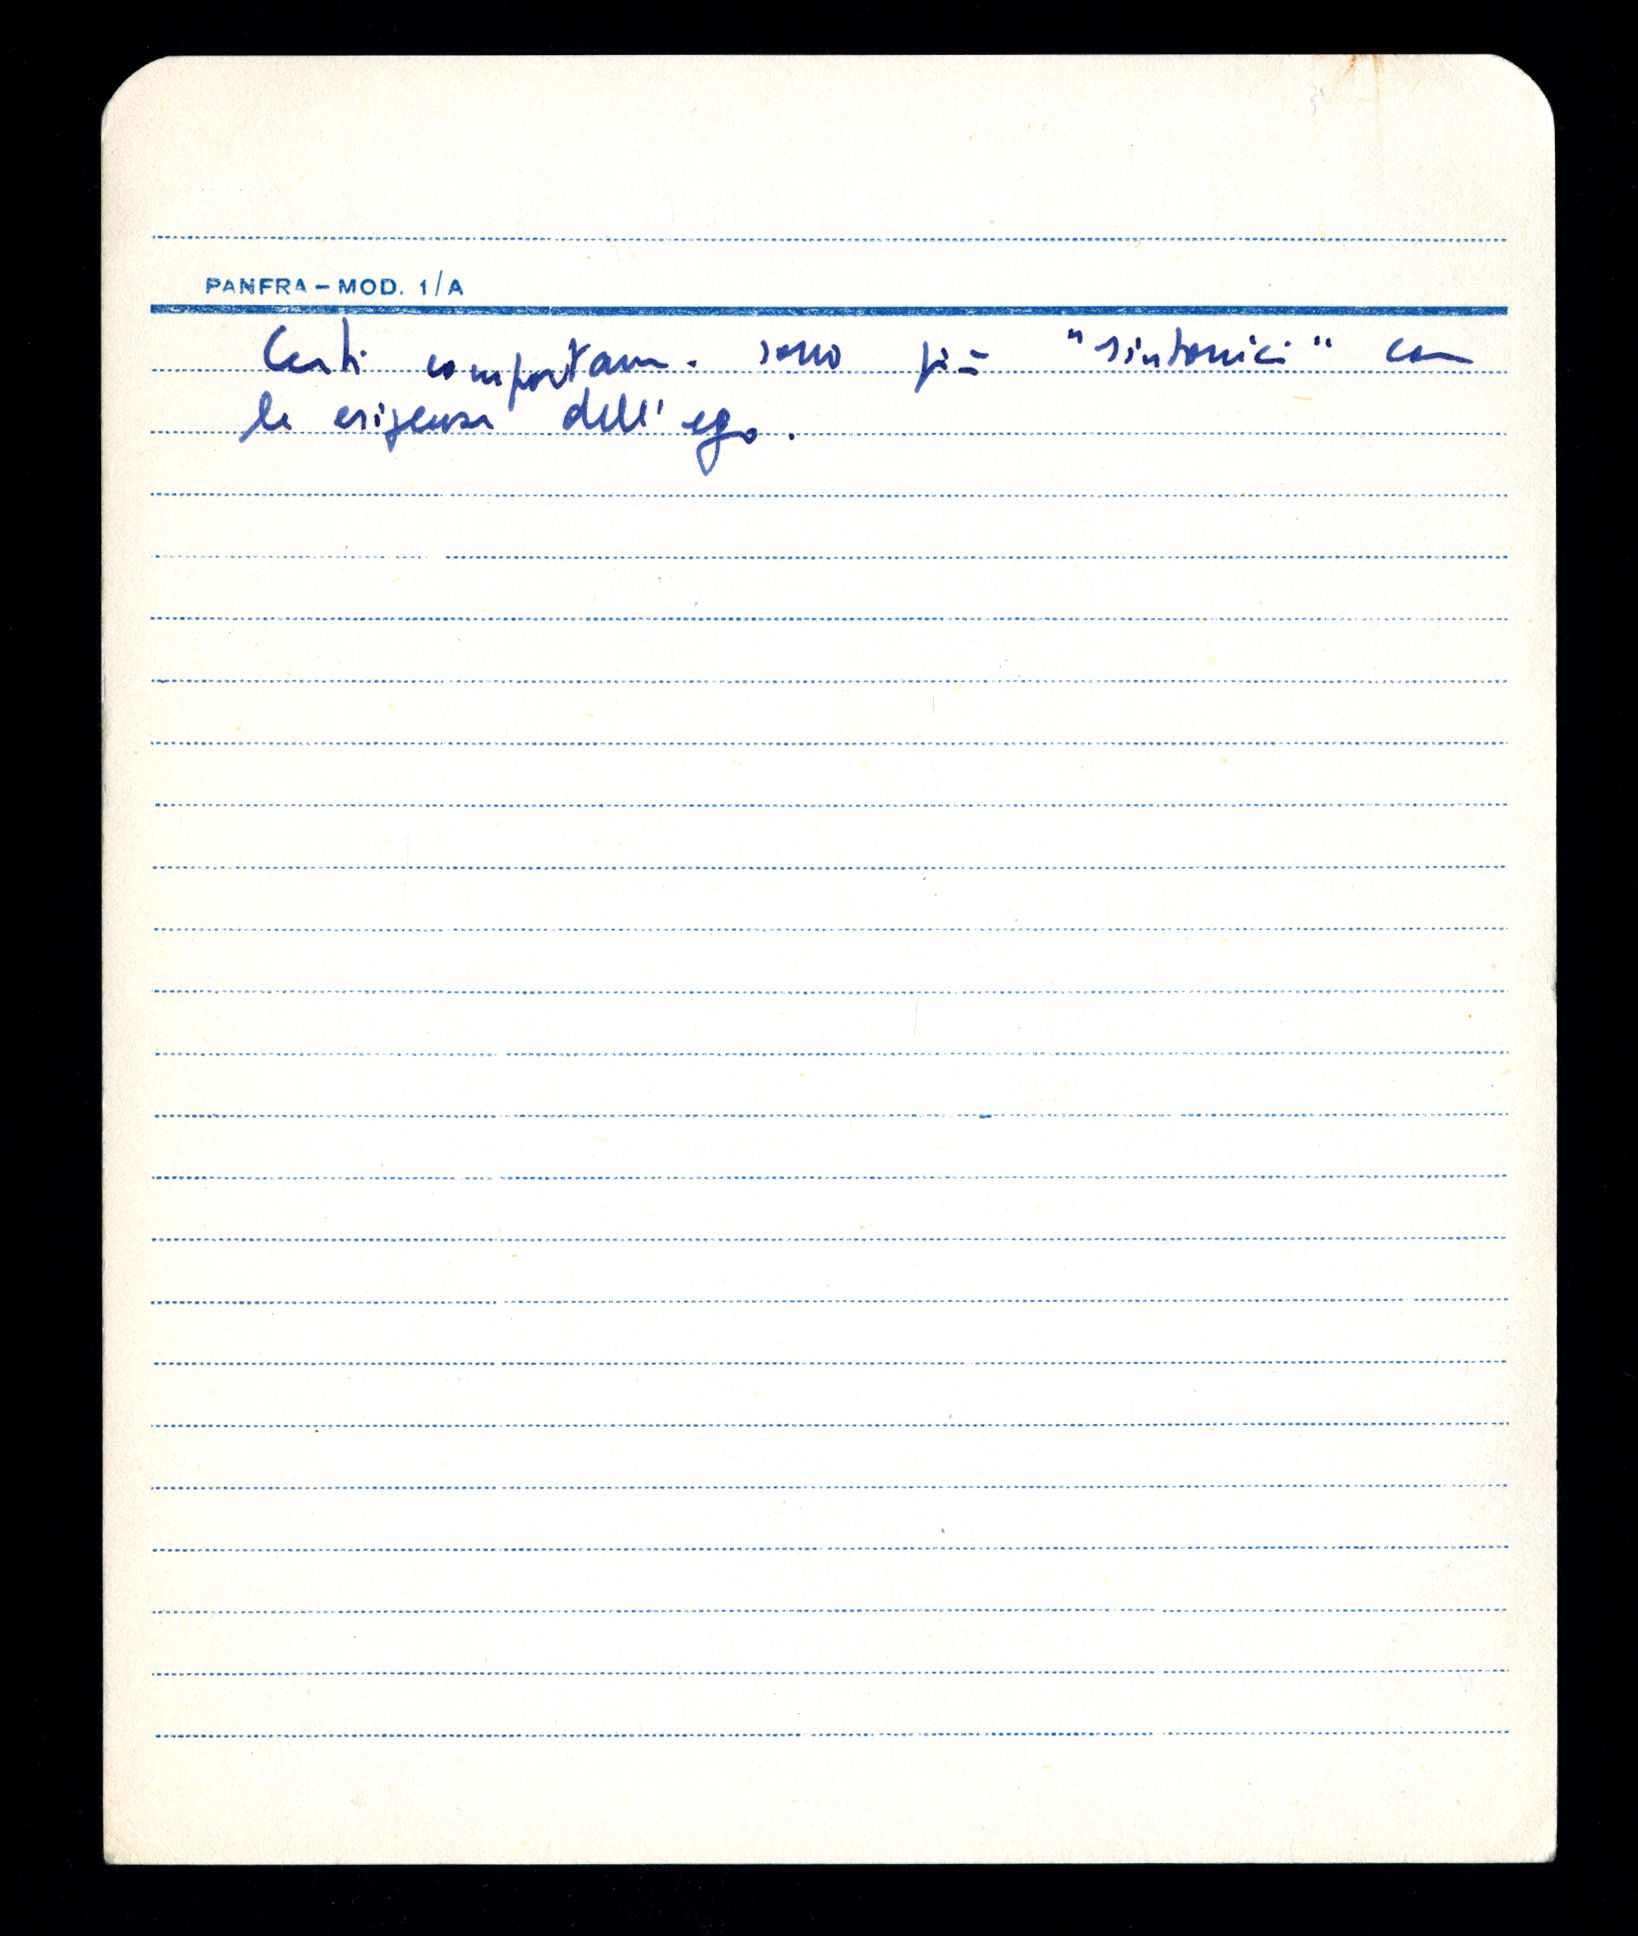 PANFRA - MOD. 1/A
Certi comportam. sono più "sintonici" con
le esigenze dell'ego.